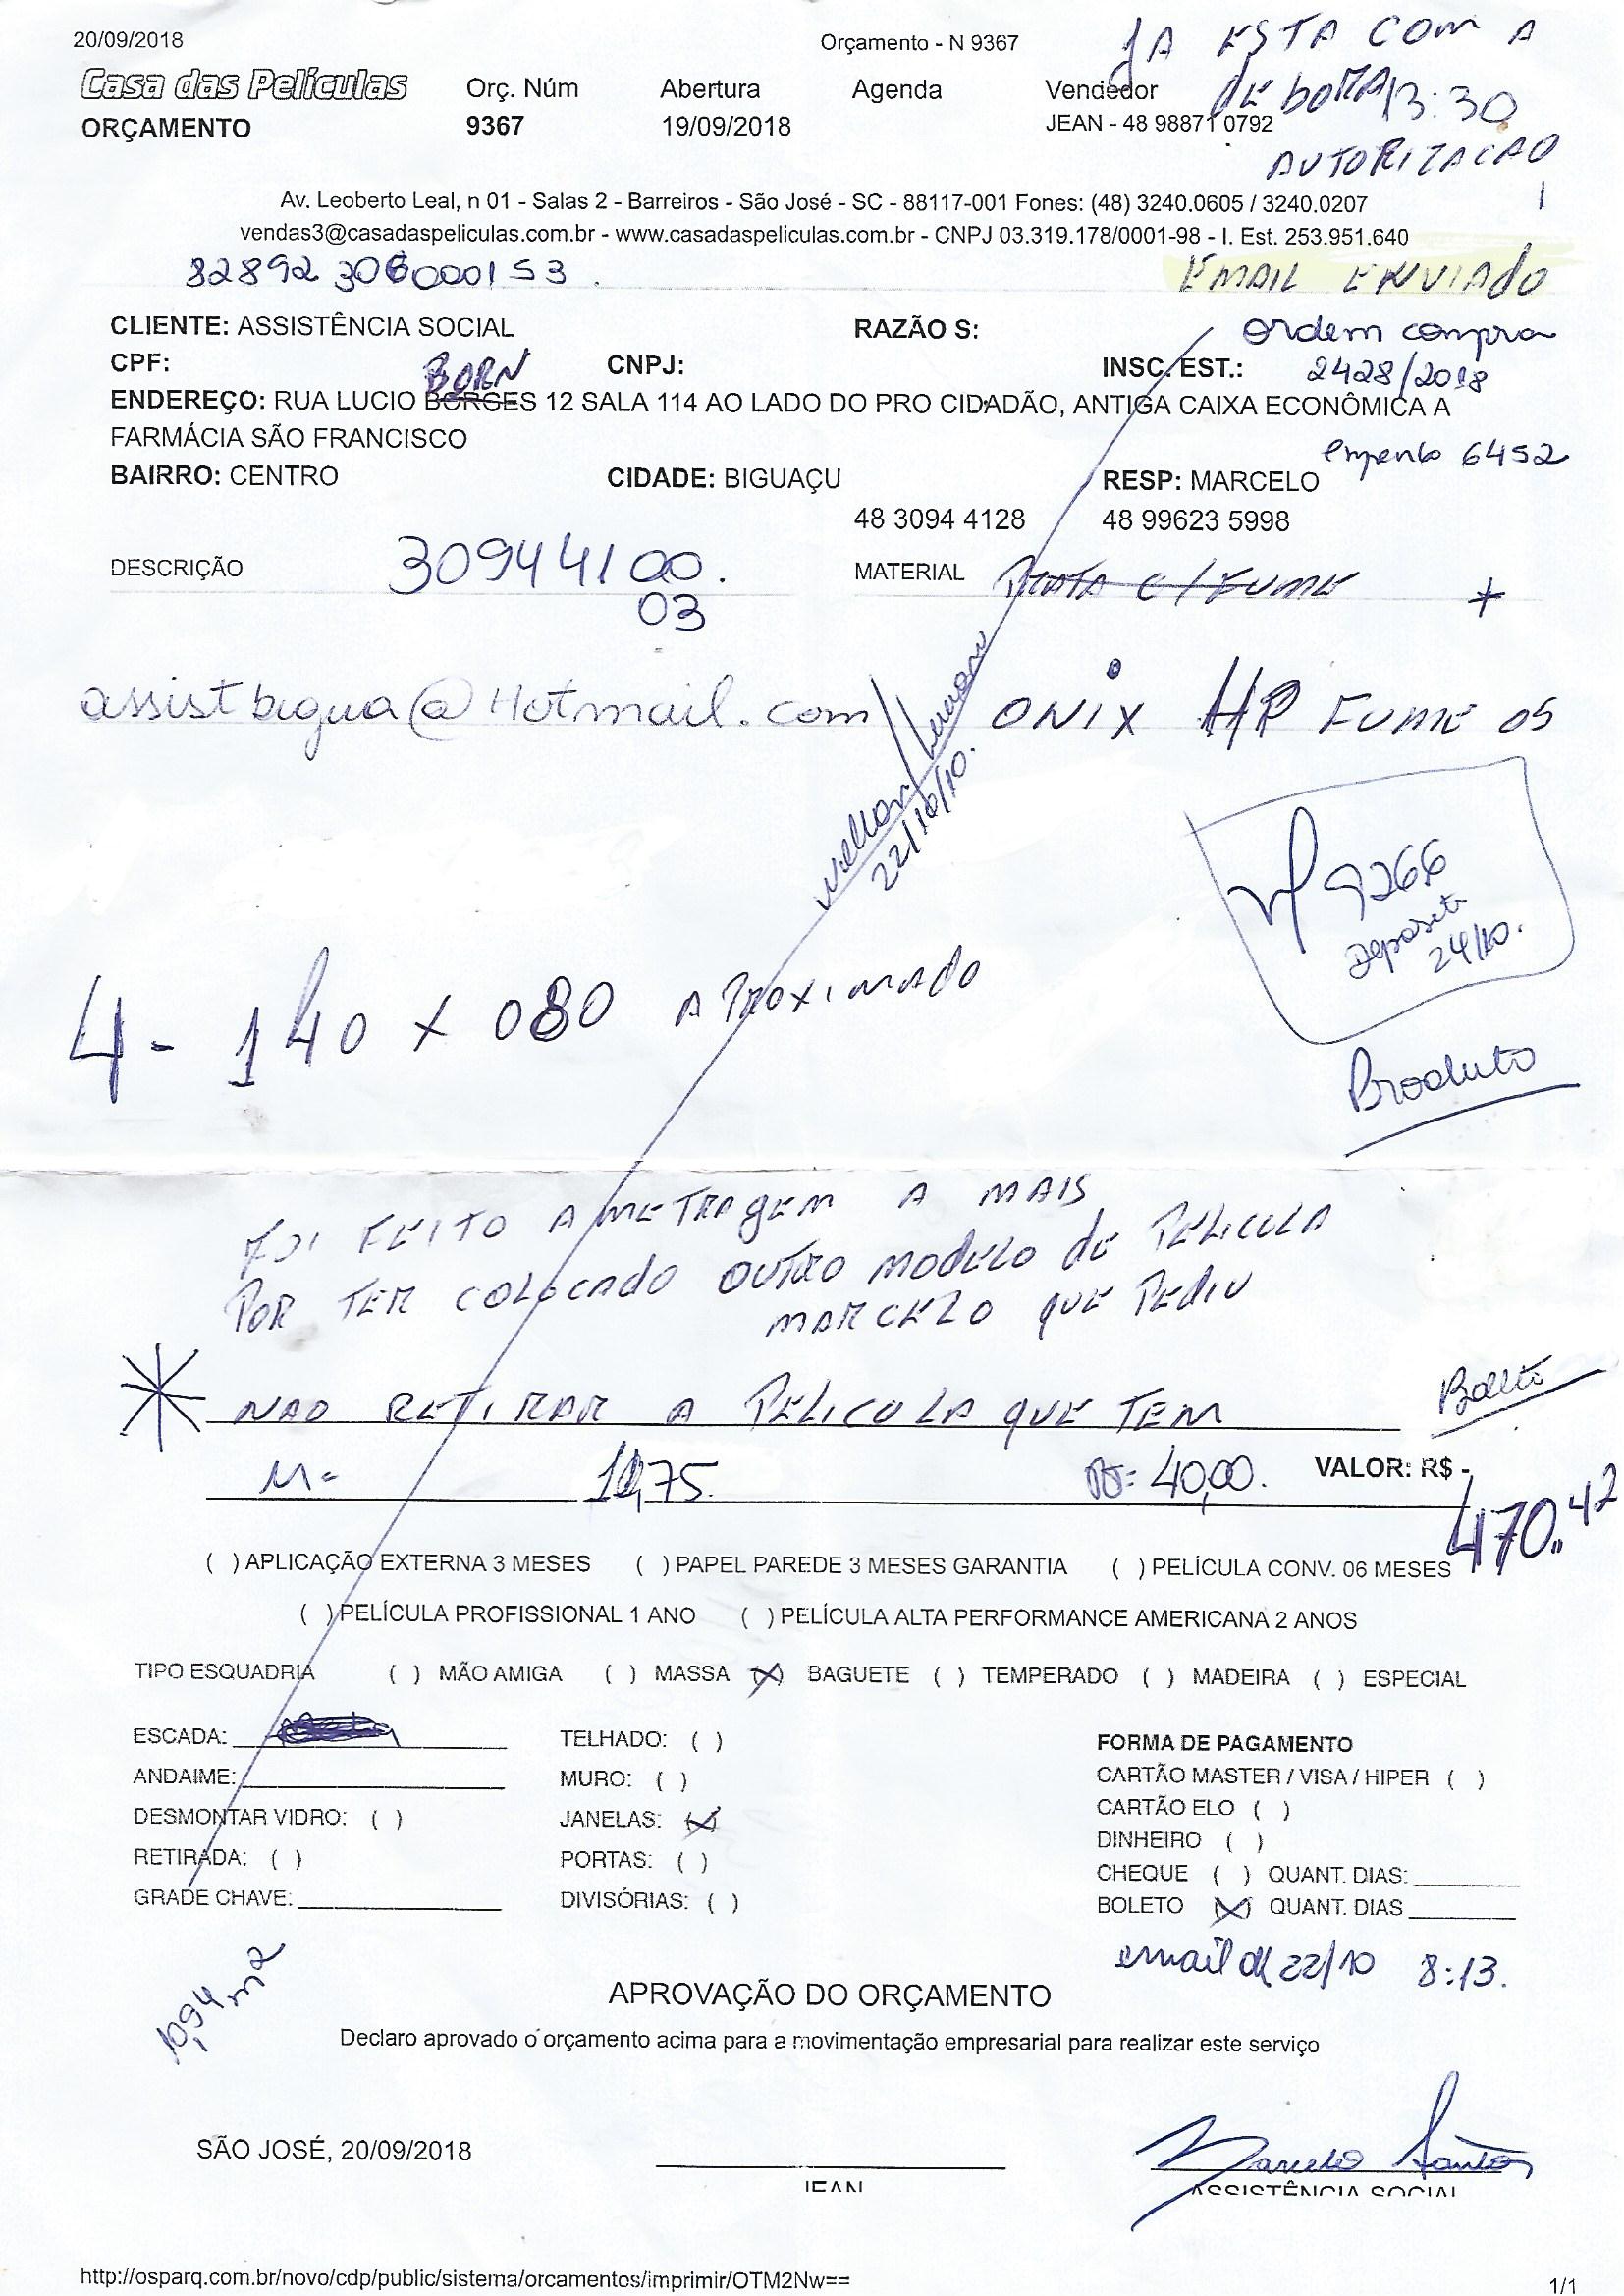 20/09/2018
Orçamento - N 9367
JA ESTA COM A
DEBORA 13:30
AUTORIZACAO
Casa das Películas
ORÇAMENTO
Orç. Núm
9367
Abertura
19/09/2018
Agenda
Vendedor
JEAN - 48 98871 0792
Av. Leoberto Leal, n 01 - Salas 2 - Barreiros - São José - SC - 88117-001 Fones: (48) 3240.0605 / 3240.0207
vendas3@casadaspeliculas.com.br - www.casadaspeliculas.com.br - CNPJ 03.319.178/0001-98 - I. Est. 253.951.640
82892 306000153.
EMAIL ENVIADO
CLIENTE: ASSISTÊNCIA SOCIAL
RAZÃO S:
ordem compra
CPF:
CNPJ:
INSC. EST.:
2428/2018
BORN
ENDEREÇO: RUA LUCIO BORGES 12 SALA 114 AO LADO DO PRO CIDADÃO, ANTIGA CAIXA ECONÔMICA A
FARMÁCIA SÃO FRANCISCO
empenho 6452
BAIRRO: CENTRO
CIDADE: BIGUAÇU
RESP: MARCELO
48 3094 4128
48 99623 5998
DESCRIÇÃO
30944100.
03
MATERIAL
PRATA C/ FUME
assistbigua@Hotmail.com
ONIX HP FUME 05
22/10/10.
NF 9266
Deposito
24/10.
4 - 140 x 080 APROXIMADO
Produto
FOI FEITO A METRAGEM A MAIS
POR TER COLOCADO OUTRO MODELO DE PELICULA
MARCELO QUE PEDIU
NAO RETIRAR A PELICULA QUE TEM
Boleto
M=
,75.
40,00.
VALOR: R$ -
470.42
( ) APLICAÇÃO EXTERNA 3 MESES ( ) PAPEL PAREDE 3 MESES GARANTIA ( ) PELÍCULA CONV. 06 MESES
( ) PELÍCULA PROFISSIONAL 1 ANO ( ) PELÍCULA ALTA PERFORMANCE AMERICANA 2 ANOS
TIPO ESQUADRIA ( ) MÃO AMIGA ( ) MASSA (X) BAGUETE ( ) TEMPERADO ( ) MADEIRA ( ) ESPECIAL
ESCADA:
TELHADO: ( )
FORMA DE PAGAMENTO
ANDAIME:
MURO: ( )
CARTÃO MASTER / VISA / HIPER ( )
DESMONTAR VIDRO: ( )
JANELAS: (X)
CARTÃO ELO ( )
DINHEIRO ( )
RETIRADA: ( )
PORTAS: ( )
CHEQUE ( ) QUANT. DIAS:
GRADE CHAVE:
DIVISÓRIAS: ( )
BOLETO (X) QUANT. DIAS
email ok 22/10 8:13.
10,94 m2
APROVAÇÃO DO ORÇAMENTO
Declaro aprovado o orçamento acima para a movimentação empresarial para realizar este serviço
SÃO JOSÉ, 20/09/2018
JEAN
Marcelo Santos
ASSISTÊNCIA SOCIAL
http://osparq.com.br/novo/cdp/public/sistema/orcamentos/imprimir/OTM2Nw==
1/1